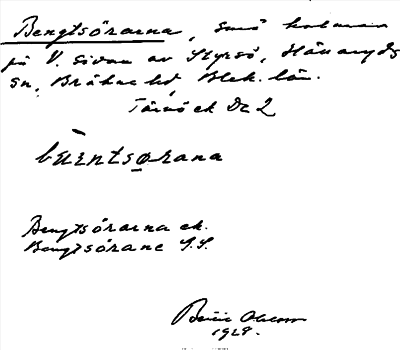 Bengtsörarna, små holmar
på V. sidan av Styrsö, Hällaryds
sn, Bräkne hd, Blek. län.
Tärnö ek Dr 2
bæntsørana
Bengtsörarna ek.
Bengtsörane S.S.
1928.